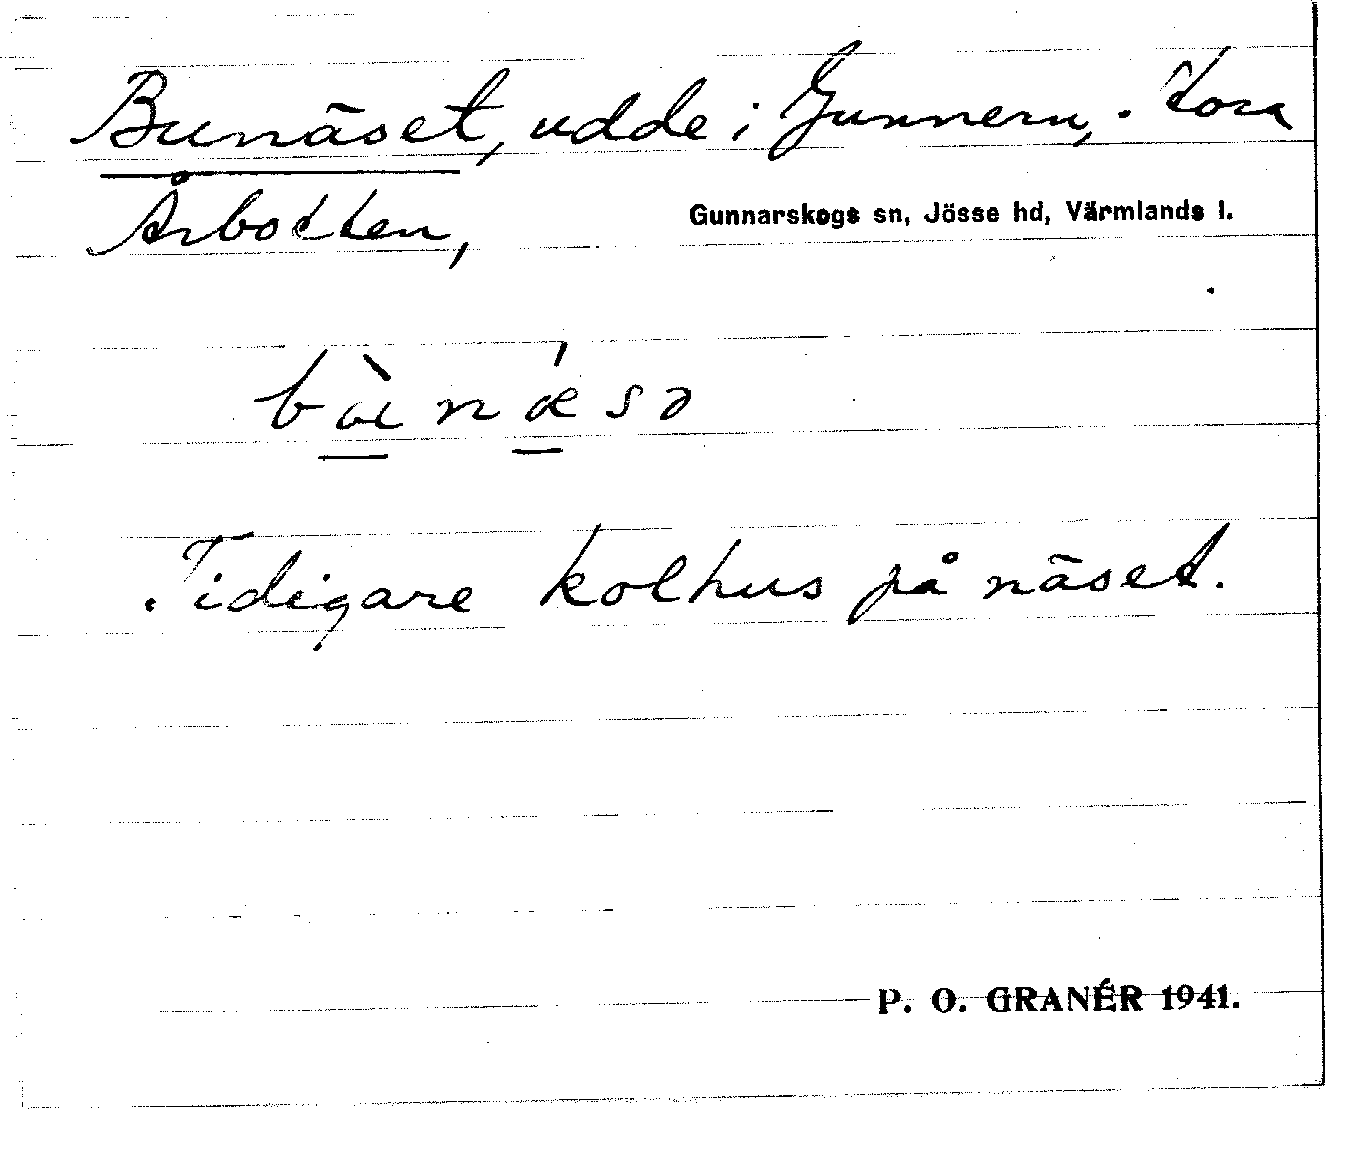 Bunäset, udde i Gunnern, Stora
Årbotten,
Gunnarskogs sn, Jösse hd, Värmlands l.
bùnǽsə
Tidigare kolhus på näset.
P. O. GRANÉR 1941.